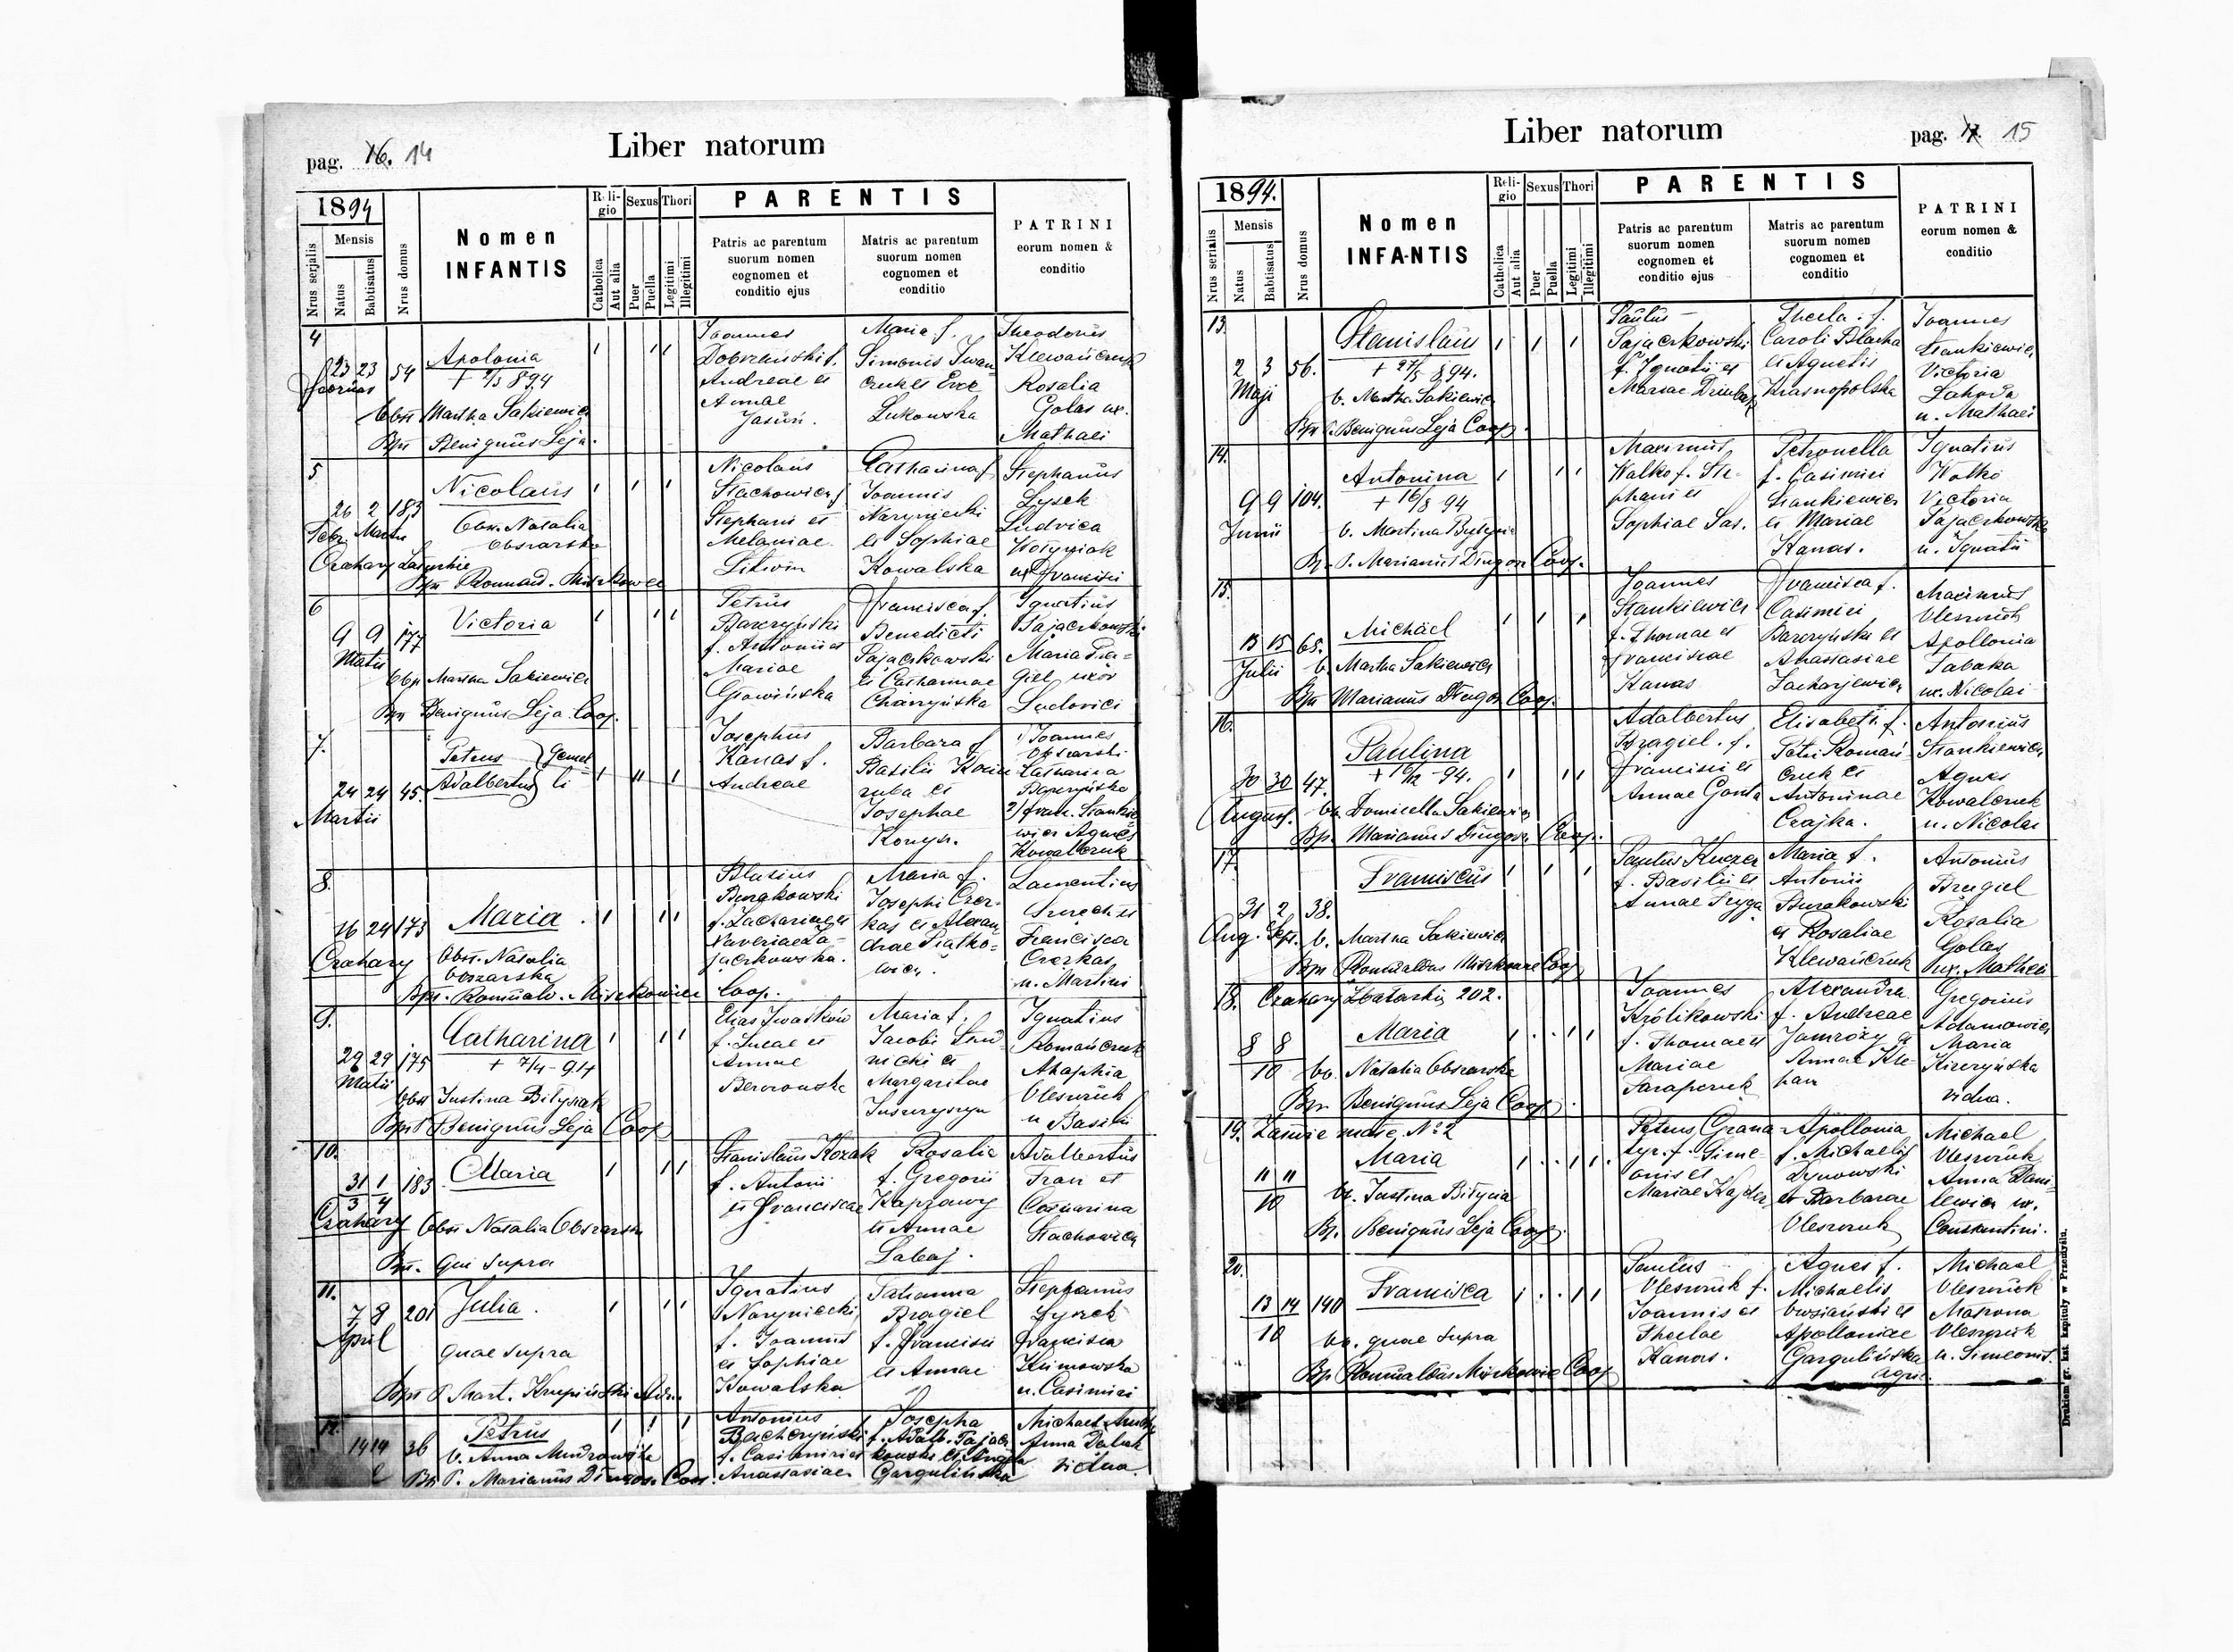 Liber natorum
pag. 16. 14
1894
Nrus serjalis
Mensis
Natus
Babtisatus
Nrus domus
Nomen
INFANTIS
Reli-
gio
Catholica
Aut alia
Sexus
Puer
Puella
Thori
Legitimi
Illegitimi
PARENTIS
Patris ac parentum
suorum nomen
cognomen et
conditio ejus
Matris ac parentum
suorum nomen
cognomen et
conditio
PATRINI
eorum nomen &
conditio
4
23 23 54
Apolonia
Obst Martha Sakiewicz
Bpt Benignus Leja.
Joannes
Dobrzański f.
Andreae et
Annae
Jasiń.
Maria f.
Simonis Iwan
czuk et Evae
Łukowska
Theodorus
Klewańczuk
Rosalia
Golas ux.
Mathaei
5
26 2 183
Febr Martii
Nicolaus
Obst. Natalia
Obszarska
Nicolaus
Stachowicz f
Stephani et
Melaniae
Litwin
Catharina f
Joannis
Naryniecki
et Sophiae
Kowalska
Stephanus
Łysek
Ludvica
Wołyniak
ux Francisci
6
9 9 177
Martii
Victoria
Obst Martha Sakiewicz
Bpt Benignus Leja Coop.
Petrus
Baczyński
f. Antonii et
Mariae
Głowińska
Francisca f.
Benedicti
Pajaczkowski
et Catharinae
Charzyńska
Ignatius
Pajaczkowski
Maria Bra=
giel uxor
Ludovici
7.
24 24 45.
Martii
Petrus
Adalbertus
Gemel
li
Josephus
Kanas f.
Andreae
Barbara f
Basilii Kociu
ruba et
Josephae
Konys.
1/ Joannes
Obszarski
Catharina
Baczyńska
2/ Fran. Stankie
wicz Agnes
Kowalczuk
8.
16 24 173
Czahary
Maria
Obst. Natalia
Obszarska
Bpt. Romuald. Miszkowicz Coop.
Blasius
Burakowski
f. Zachariae et
Xaveriae Pa-
jaczkowska.
Maria f.
Josephi Czer-
kas et Alexan
drae Piatko=
wicz.
Laurentius
Francisca
Czerkas
u. Martini
9.
29 29 175
Martii
Catharina
+ 7/4 - 94
Obst Justina Bitysiak
Bpt P Benignus Leja Coop
Elias Iwaśków
f. Lucae et
Annae
Maria f.
Jacobi Stud
nicki et
Margaritae
Ignatius
Romańczuk
Ahaphia
Oleszczuk
u Basilii
10.
31 1 183
3 4
Czahary
Maria
Obst Natalia Obszarska
Bpt. Qui supra
Stanislaus Kozak
f. Antoni
et Franciscae
Rosalia
f. Gregorii
et Annae
Labaj.
Adalbertus
Fran et
Catharina
Stachowicz
11.
7 8 201
April
Julia.
quae supra
Bpt P Mart. Krupiński Adm.
Ignatius
Naryniecki
f. Joannis
et Sophiae
Kowalska
Tatianna
Bragiel
f. Francisci
et Annae
Stephanus
Łysek
Francisca
Klimowska
u. Casimiri
12.
14 14 36
Petrus
Bpt P. Marianus Długosz Coop.
Antonius
Baczyński
f. Casimiri et
Anastasiae
Josepha
f. Adalb. Pajacz
kowski et Angela
Gargulińska
Michael
Anna
vidua
Liber natorum
pag. 15
1894.
Nrus serialis
Mensis
Natus
Babtisatus
Nrus domus
Nomen
INFANTIS
Reli-
gio
Catholica
Aut alia
Sexus
Puer
Puella
Thori
Legitimi
Illegitimi
PARENTIS
Patris ac parentum
suorum nomen
cognomen et
conditio ejus
Matris ac parentum
suorum nomen
cognomen et
conditio
PATRINI
eorum nomen &
conditio
13.
2 3 56.
Maji
Stanislaus
+ 27/5 894.
b. Martha Sakiewicz
Bpt P. Benignus Leja Coop.
Paulus
Pajaczkowski
f. Ignatii et
Mariae
Thecla. f.
Caroli Blacha
et Agnetis
Krasnopolska
Joannes
Stankiewicz
Victoria
Zahoda
u. Mathaei
14.
9 9 104.
Junii
Antonina
+ 16/8 94
Bp. P. Marianus Długosz Coop.
Maximus
Walko f. Ste-
phani et
Sophiae Sas.
Petronella
f. Casimiri
Stankiewicz
et Mariae
Kanas.
Ignatius
Walko
Victoria
Pajaczkowska
u. Ignatii
15.
15 15 68.
Julii
Michael
b. Martha Sakiewicz
Bpt Marianus Długosz Coop.
Joannes
Stankiewicz
f. Thomae et
Franciscae
Kanas
Francisca f.
Casimiri
Baczyński et
Anastasiae
Zacharjewicz
Maximus
Oleszczuk
Apollonia
Tabaka
ux. Nicolai
16.
30 30 47.
August.
Paulina
b. Domicella Sakiewicz
Bp. Marianus Długosz Coop.
Adalbertus
Bragiel. f.
Francisci et
Annae Gonta
Elisabeth f.
Petri Romań-
czuk et
Antoninae
Czajka.
Antonius
Stankiewicz
Agnes
Kowalczuk
u. Nicolai
17.
31 2 38.
Aug. Sept.
Franciscus
b. Martha Sakiewicz
Bpt Romualdus Miszkowicz Coop
f. Basilii et
Annae Fryga
Maria f.
Antonii
Burakowski
et Rosaliae
Klewańczuk
Antonius
Bragiel
Rosalia
Golas
ux. Mathei
18. Czahary Zbaraskie 202.
8 8
10
Maria
b. Natalia Obszarska
Bp. Benignus Leja Coop.
Joannes
Królikowski
f. Thomae et
Mariae
Alexandra
f. Andreae
Jamroży et
Annae
Gregorius
Adamowicz
Maria
vidua.
19. No 2
11 11
10
Maria
Bp. Benignus Leja Coop.
Petrus Grana-
tyr. f. Sime-
onis et
Mariae
Apollonia
f. Michaelis
Dynowski
et Barbarae
Oleszczuk
Michael
Oleszczuk
Anna Dani-
lewicz ux.
Constantini.
20.
13 14 140
10
Francisca
b. quae supra
Bp Romualdus Miszkowicz Coop
Paulus
Oleszczuk f.
Joannis et
Theclae
Kanas.
Agnes f.
Michaelis
et
Apolloniae
Gargulińska
Michael
Oleszczuk
Matrona
Oleszczuk
u. Simeonis.
Drukiem gr. kat. kapituły w Przemyślu.